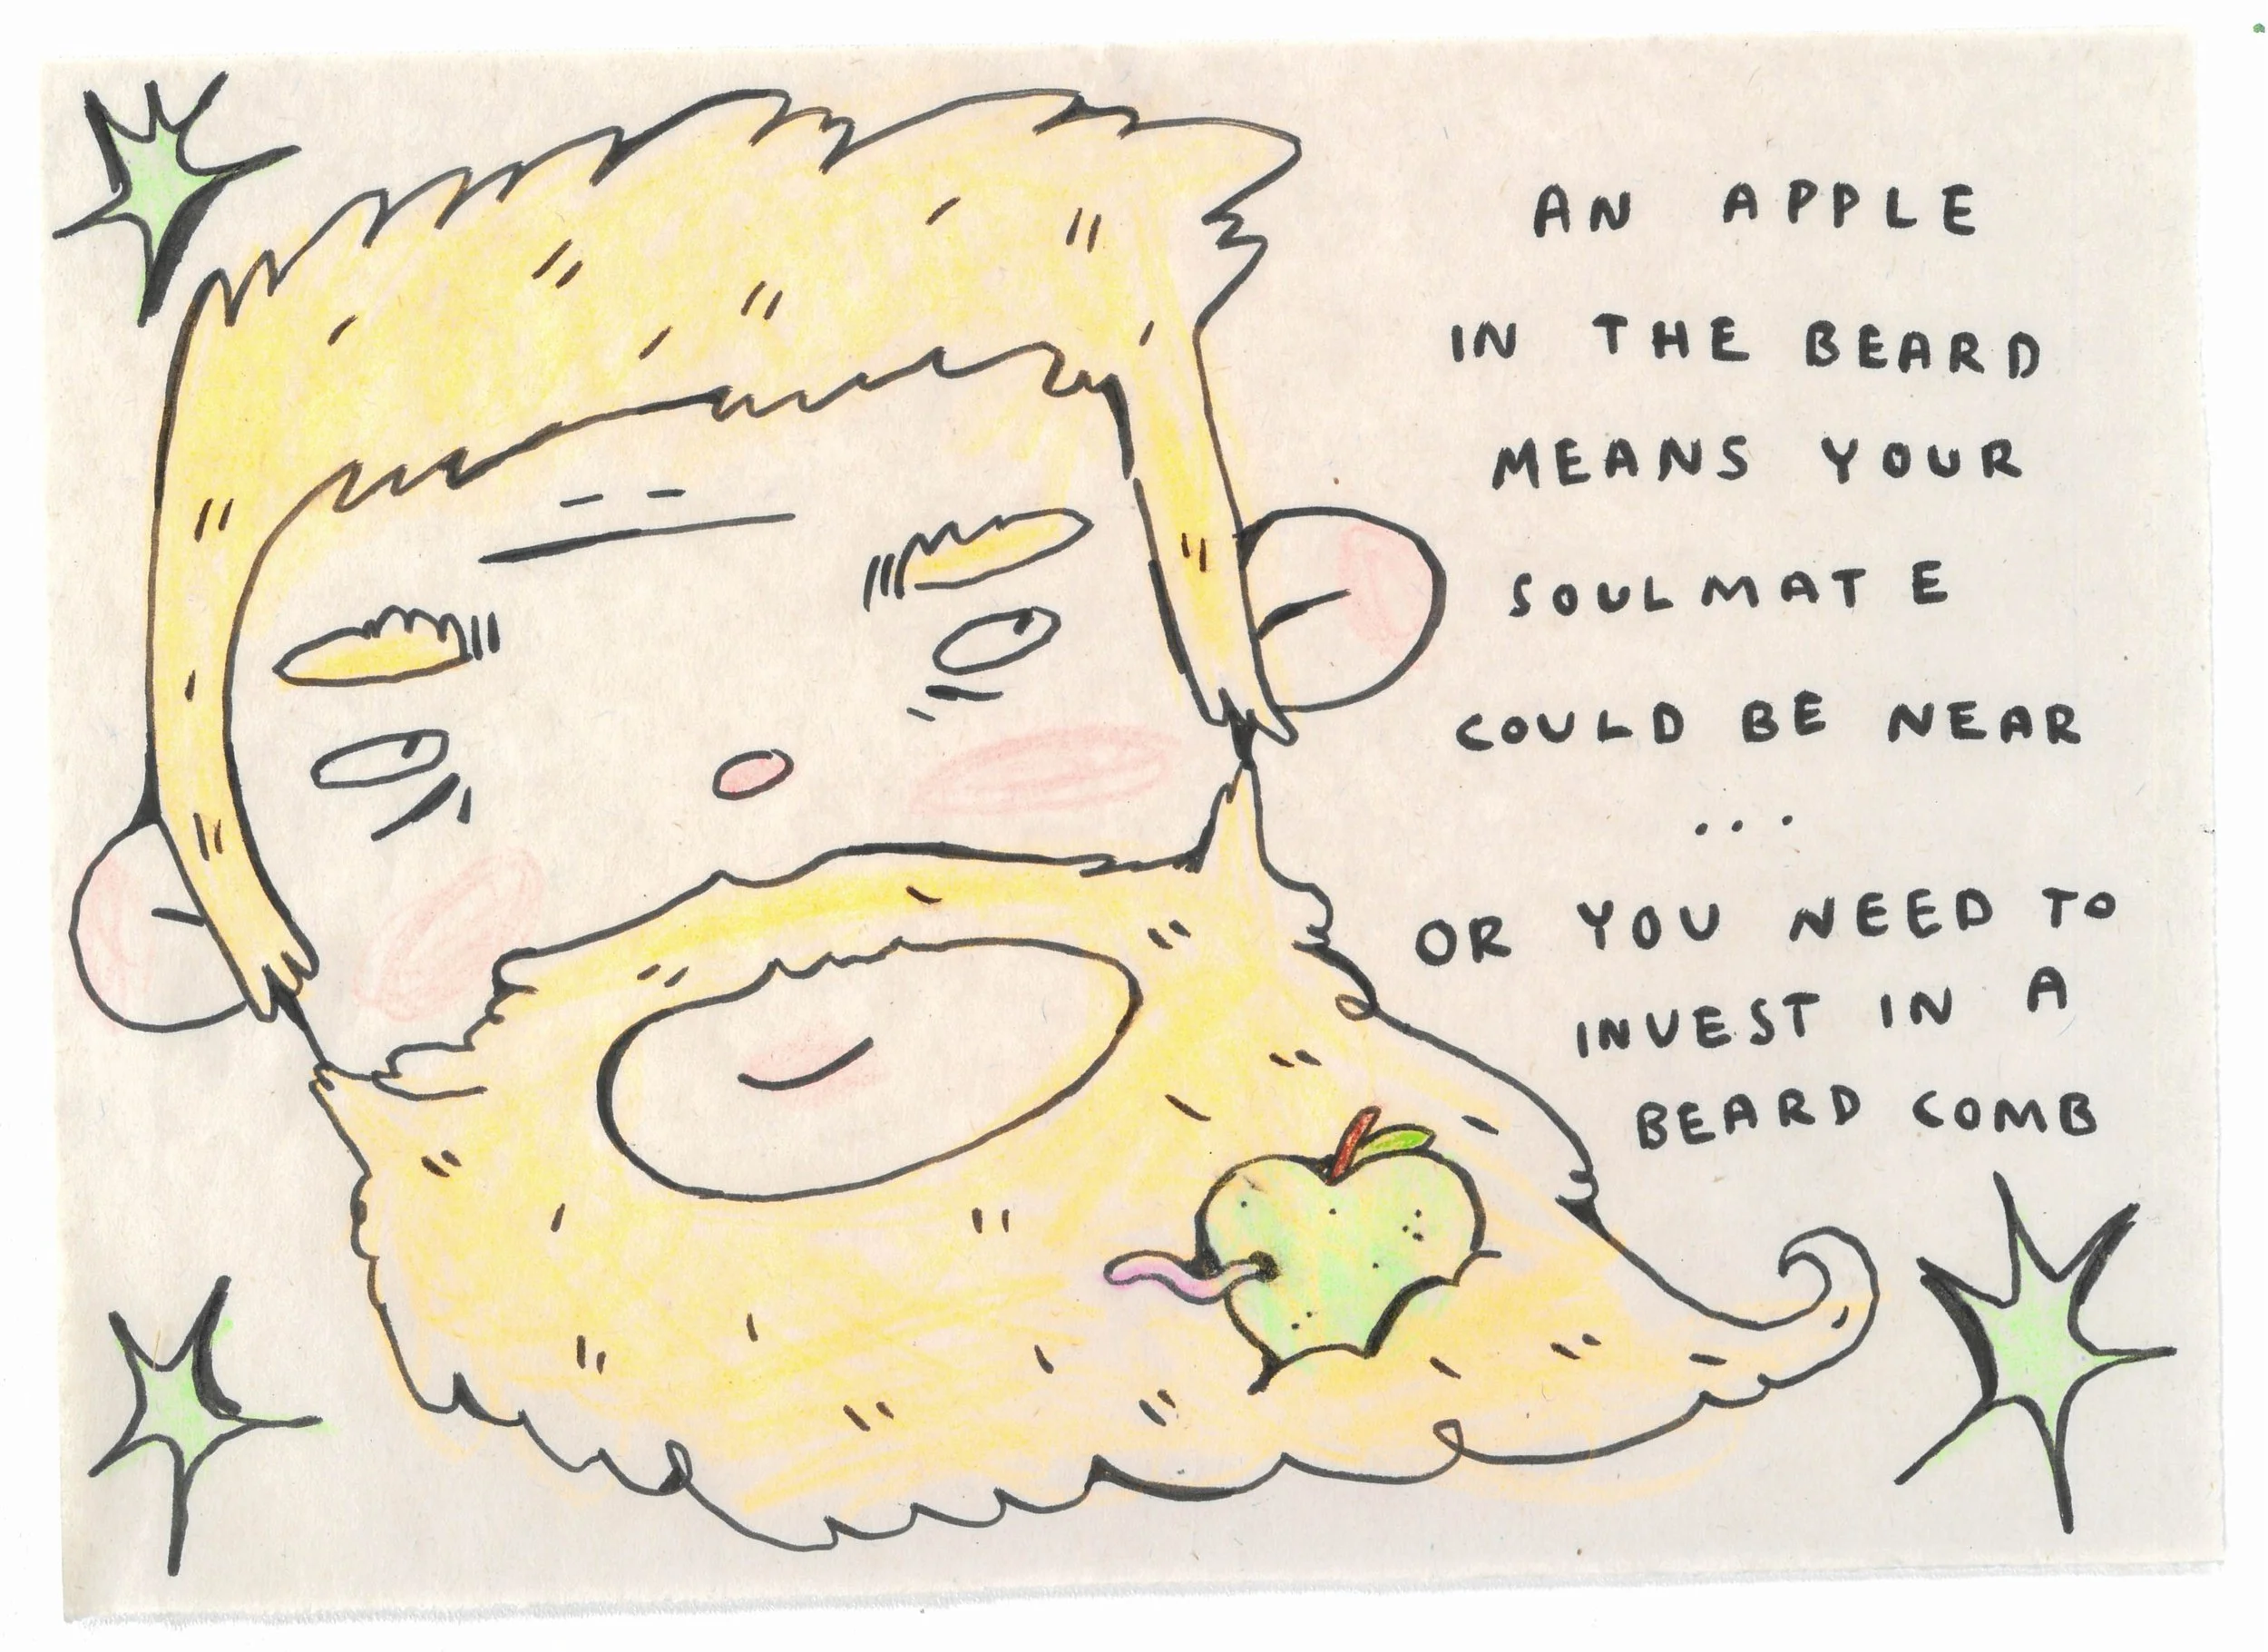 AN APPLE
IN THE BEARD
MEANS YOUR
SOULMATE
COULD BE NEAR
...
OR YOU NEED TO
INVEST IN A
BEARD COMB